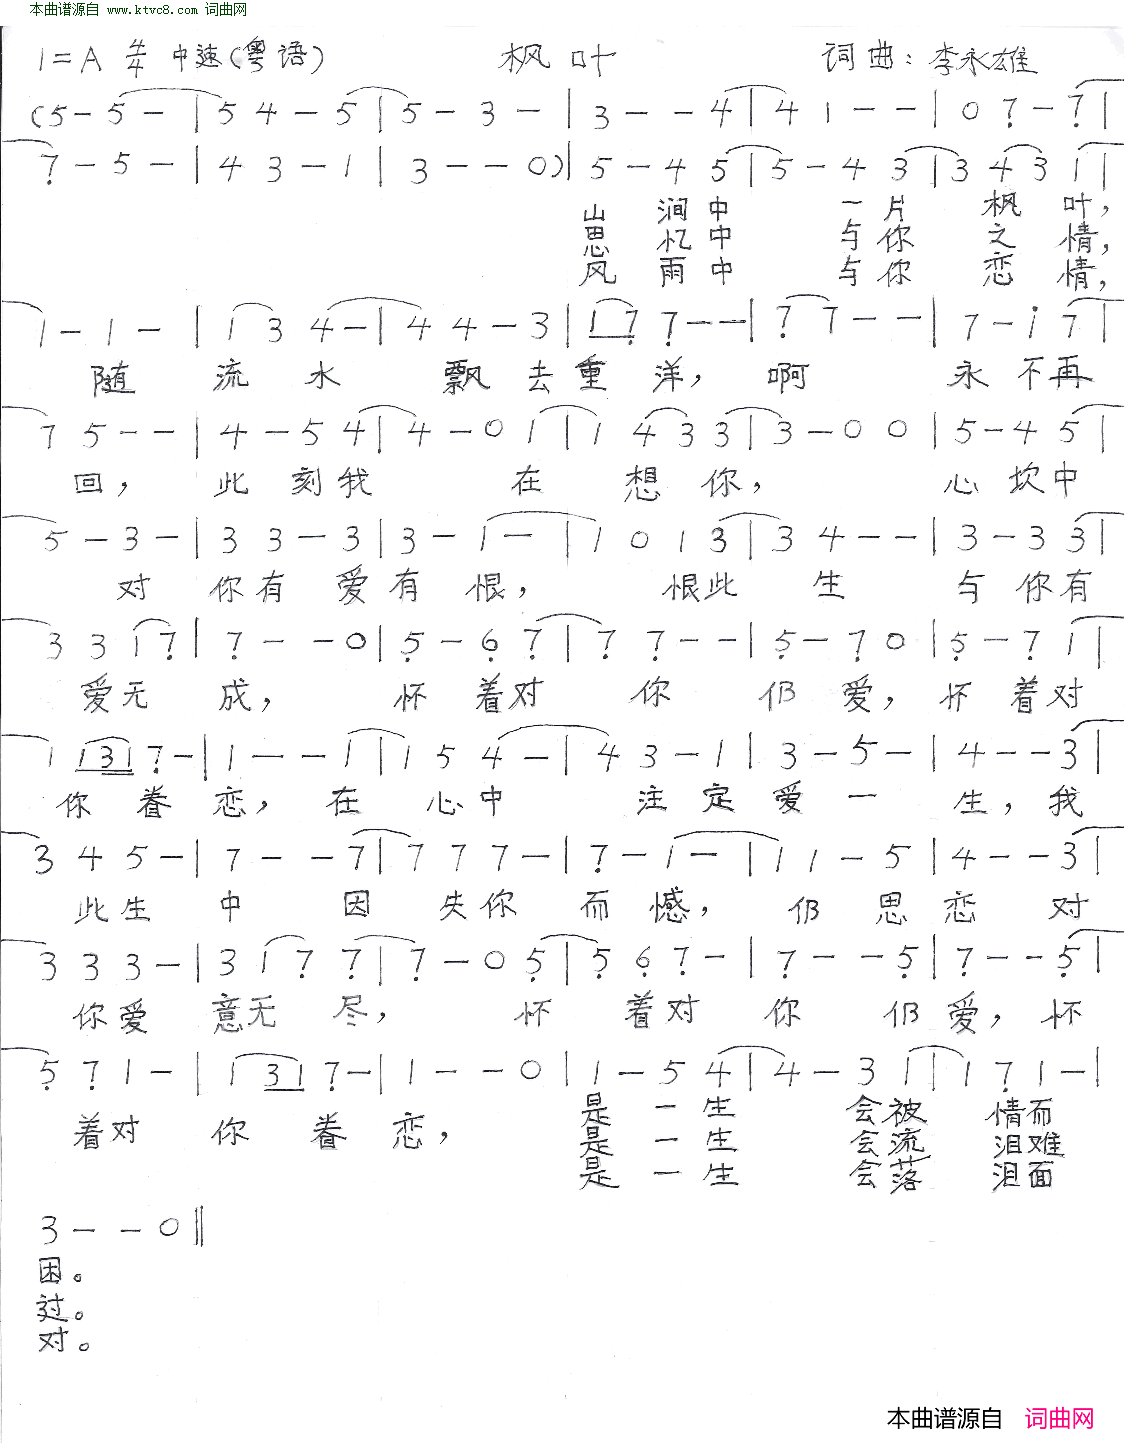 本曲谱源自 www.ktvc8.com 词曲网
1=A 4/4 中速(粤语) 枫叶 词曲:李永雄
(5 - 5 - | 5 4 - 5 | 5 - 3 - | 3 - - 4 | 4 1 - - | 0 7̣ - 7̣ |
7̣ - 5 - | 4 3 - 1 | 3 - - 0) | 5 - 4 5 | 5 - 4 3 | 3 4 3 1 |
山 涧 中 一 片 枫 叶,
思 忆 中 与 你 之 情,
风 雨 中 与 你 恋 情,
1 - 1 - | 1 3 4 - | 4 4 - 3 | 1 7̣ 7̣ - - | 7̣ 7 - - | 7 - i 7 |
随 流 水 飘 去 重 洋, 啊 永 不 再
7 5 - - | 4 - 5 4 | 4 - 0 1 | 1 4 3 3 | 3 - 0 0 | 5 - 4 5 |
回, 此 刻 我 在 想 你, 心 坎 中
5 - 3 - | 3 3 - 3 | 3 - 1 - | 1 0 1 3 | 3 4 - - | 3 - 3 3 |
对 你 有 爱 有 恨, 恨 此 生 与 你 有
3 3 1 7̣ | 7̣ - - 0 | 5̣ - 6̣ 7̣ | 7̣ 7̣ - - | 5̣ - 7̣ 0 | 5̣ - 7̣ 1 |
爱 无 成, 怀 着 对 你 仍 爱, 怀 着 对
1 1 3 1 7̣ - | 1 - - 1 | 1 5 4 - | 4 3 - 1 | 3 - 5 - | 4 - - 3 |
你 眷 恋, 在 心 中 注 定 爱 一 生, 我
3 4 5 - | 7 - - 7 | 7 7 7 - | 7̣ - 1 - | 1 1 - 5 | 4 - - 3 |
此 生 中 因 失 你 而 憾, 仍 思 恋 对
3 3 3 - | 3 1 7̣ 7̣ | 7̣ - 0 5̣ | 5̣ 6̣ 7̣ - | 7̣ - - 5̣ | 7̣ - - 5̣ |
你 爱 意 无 尽, 怀 着 对 你 仍 爱, 怀
5̣ 7̣ 1 - | 1 3 1 7̣ - | 1 - - 0 | 1 - 5 4 | 4 - 3 1 | 1 7̣ 1 - |
着 对 你 眷 恋, 是 一 生 会 被 情 而
是 一 生 会 流 泪 难
是 一 生 会 落 泪 面
3 - - 0 ‖
困。
过。
对。
本曲谱源自 词曲网